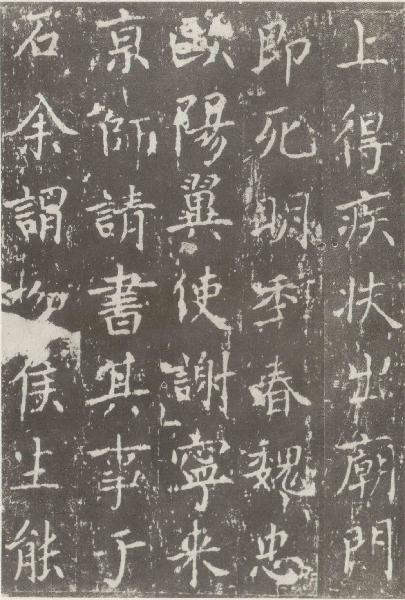 上得疾扶出廟門
即死明季春魏忠
歐陽翼使謝寧来
京師請書其事于
石余謂柳侯生能